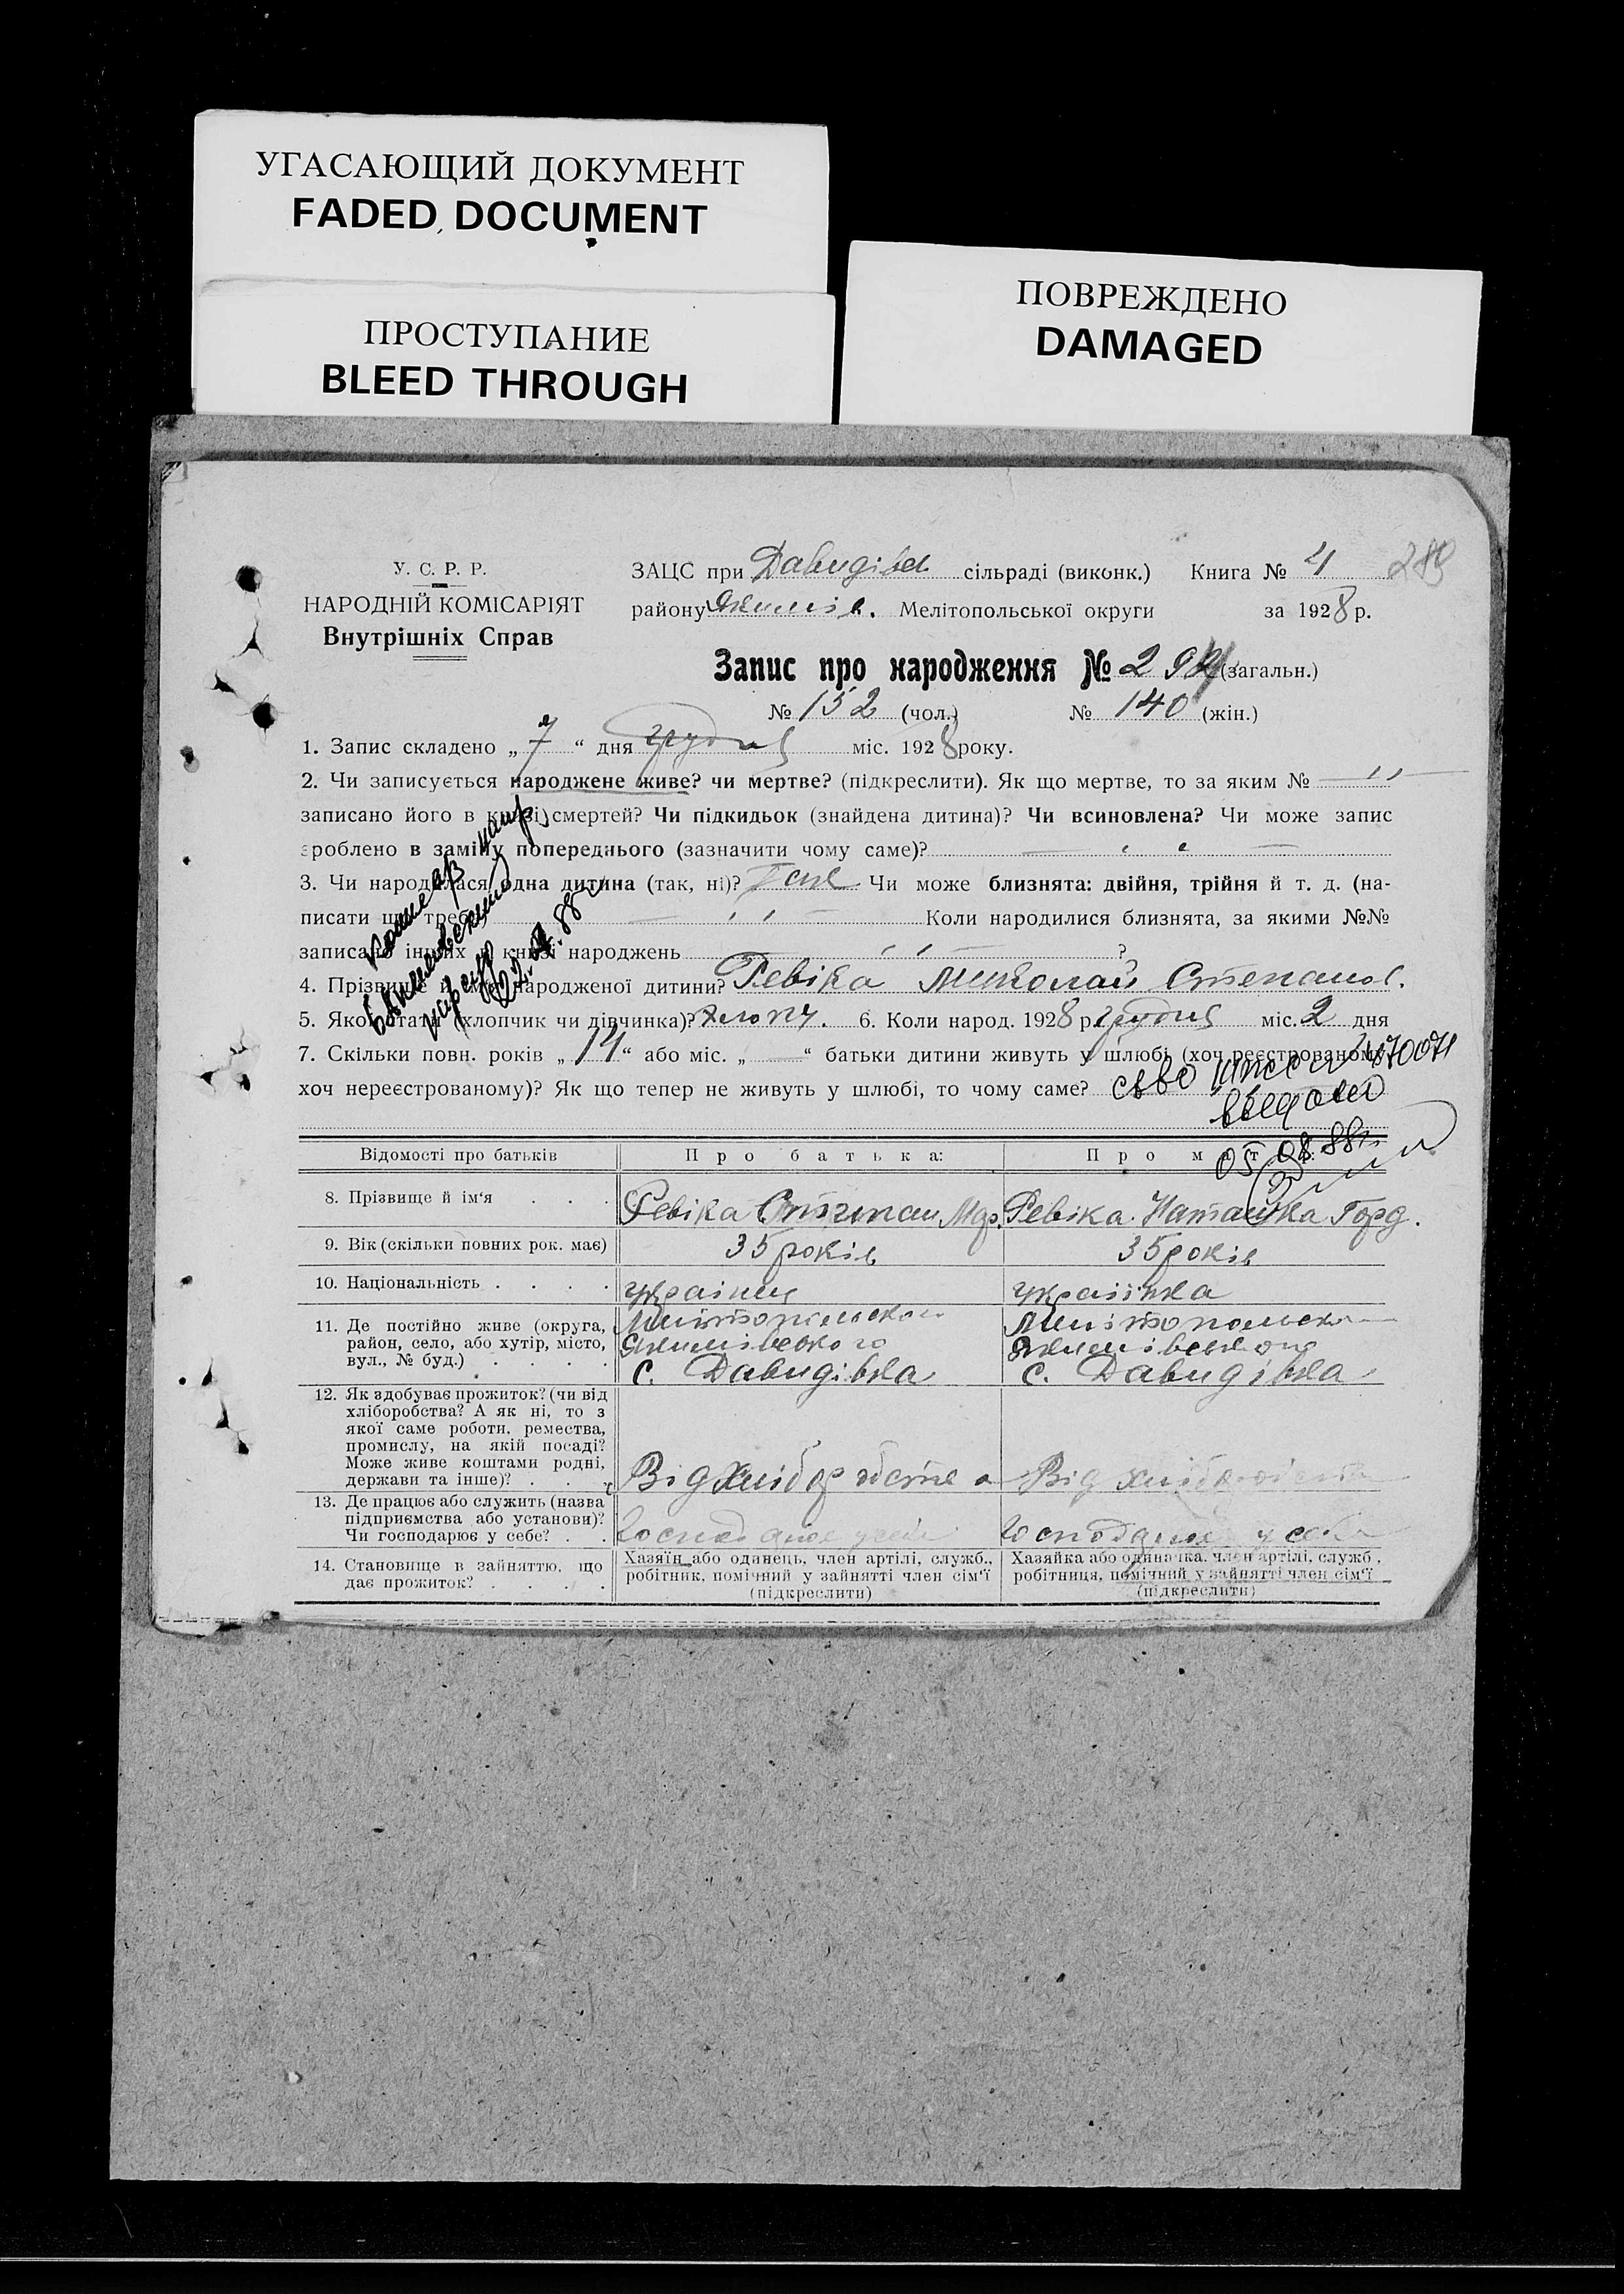 УГАСАЮЩИЙ ДОКУМЕНТ
FADED DOCUMENT
ПРОСТУПАНИЕ
BLEED THROUGH
ПОВРЕЖДЕНО
DAMAGED
У. С. Р. Р.
НАРОДНІЙ КОМІСАРІЯТ
Внутрішніх Справ
ЗАЦС при Давидівс сільраді (виконк.) Книга № 4 289
району Якимів. Мелітопольської округи за 1928 р.
Запис про народження № 292 (загальн.)
№ 152 (чол.) № 140 (жін.)
1. Запис складено „ 7 “ дня грудня міс. 1928 року.
2. Чи записується народжене живе? чи мертве? (підкреслити). Як що мертве, то за яким №
записано його в книзі смертей? Чи підкидьок (знайдена дитина)? Чи всиновлена? Чи може запис
зроблено в заміну попереднього (зазначити чому саме)?
3. Чи народилася одна дитина (так, ні)? Так Чи може близнята: двійня, трійня й т. д. (на-
писати що треба) Коли народилися близнята, за якими №№
записано інших в книзі народжень ?
4. Прізвище й імя народженої дитини? Ревіка Миколай Степанов.
5. Якої стати (хлопчик чи дівчинка)? хлопч. 6. Коли народ. 1928 р. грудня міс. 2 дня
7. Скільки повн. років „ 14 “ або міс. „ — “ батьки дитини живуть у шлюбі (хоч реєстрованому
хоч нереєстрованому)? Як що тепер не живуть у шлюбі, то чому саме?
22. 88
470071
05 08 88г.
Відомості про батьків
Про батька:
Про матір:
8. Прізвище й ім‘я . . . Ревіка Степан Мар. Ревіка Наташка Горд.
9. Вік (скільки повних рок. має) 35 років 35 років
10. Національність . . . . українец українка
11. Де постійно живе (округа, район, село, або хутір, місто, вул., № буд.) . . . .
Мелітопольської Мелітопольської
Якимівського Якимівського
с. Давидівка с. Давидівка
12. Як здобуває прожиток? (чи від
хліборобства? А як ні, то з
якої саме роботи, ремества,
промислу, на якій посаді?
Може живе коштами родні,
держави та інше)? . . . Від хліборобства Від хліборобства
13. Де працює або служить (назва
підприємства або установи)?
Чи господарює у себе? . . Господарює у себе Господарює у себе
14. Становище в зайняттю, що
дає прожиток? . . . .
Хазяїн або одинець, член артілі, служб.,
робітник, помічний у зайнятті член сім‘ї
(підкреслити)
Хазяйка або одиначка, член артілі, служб.,
робітниця, помічний у зайнятті член сім‘ї
(підкреслити)